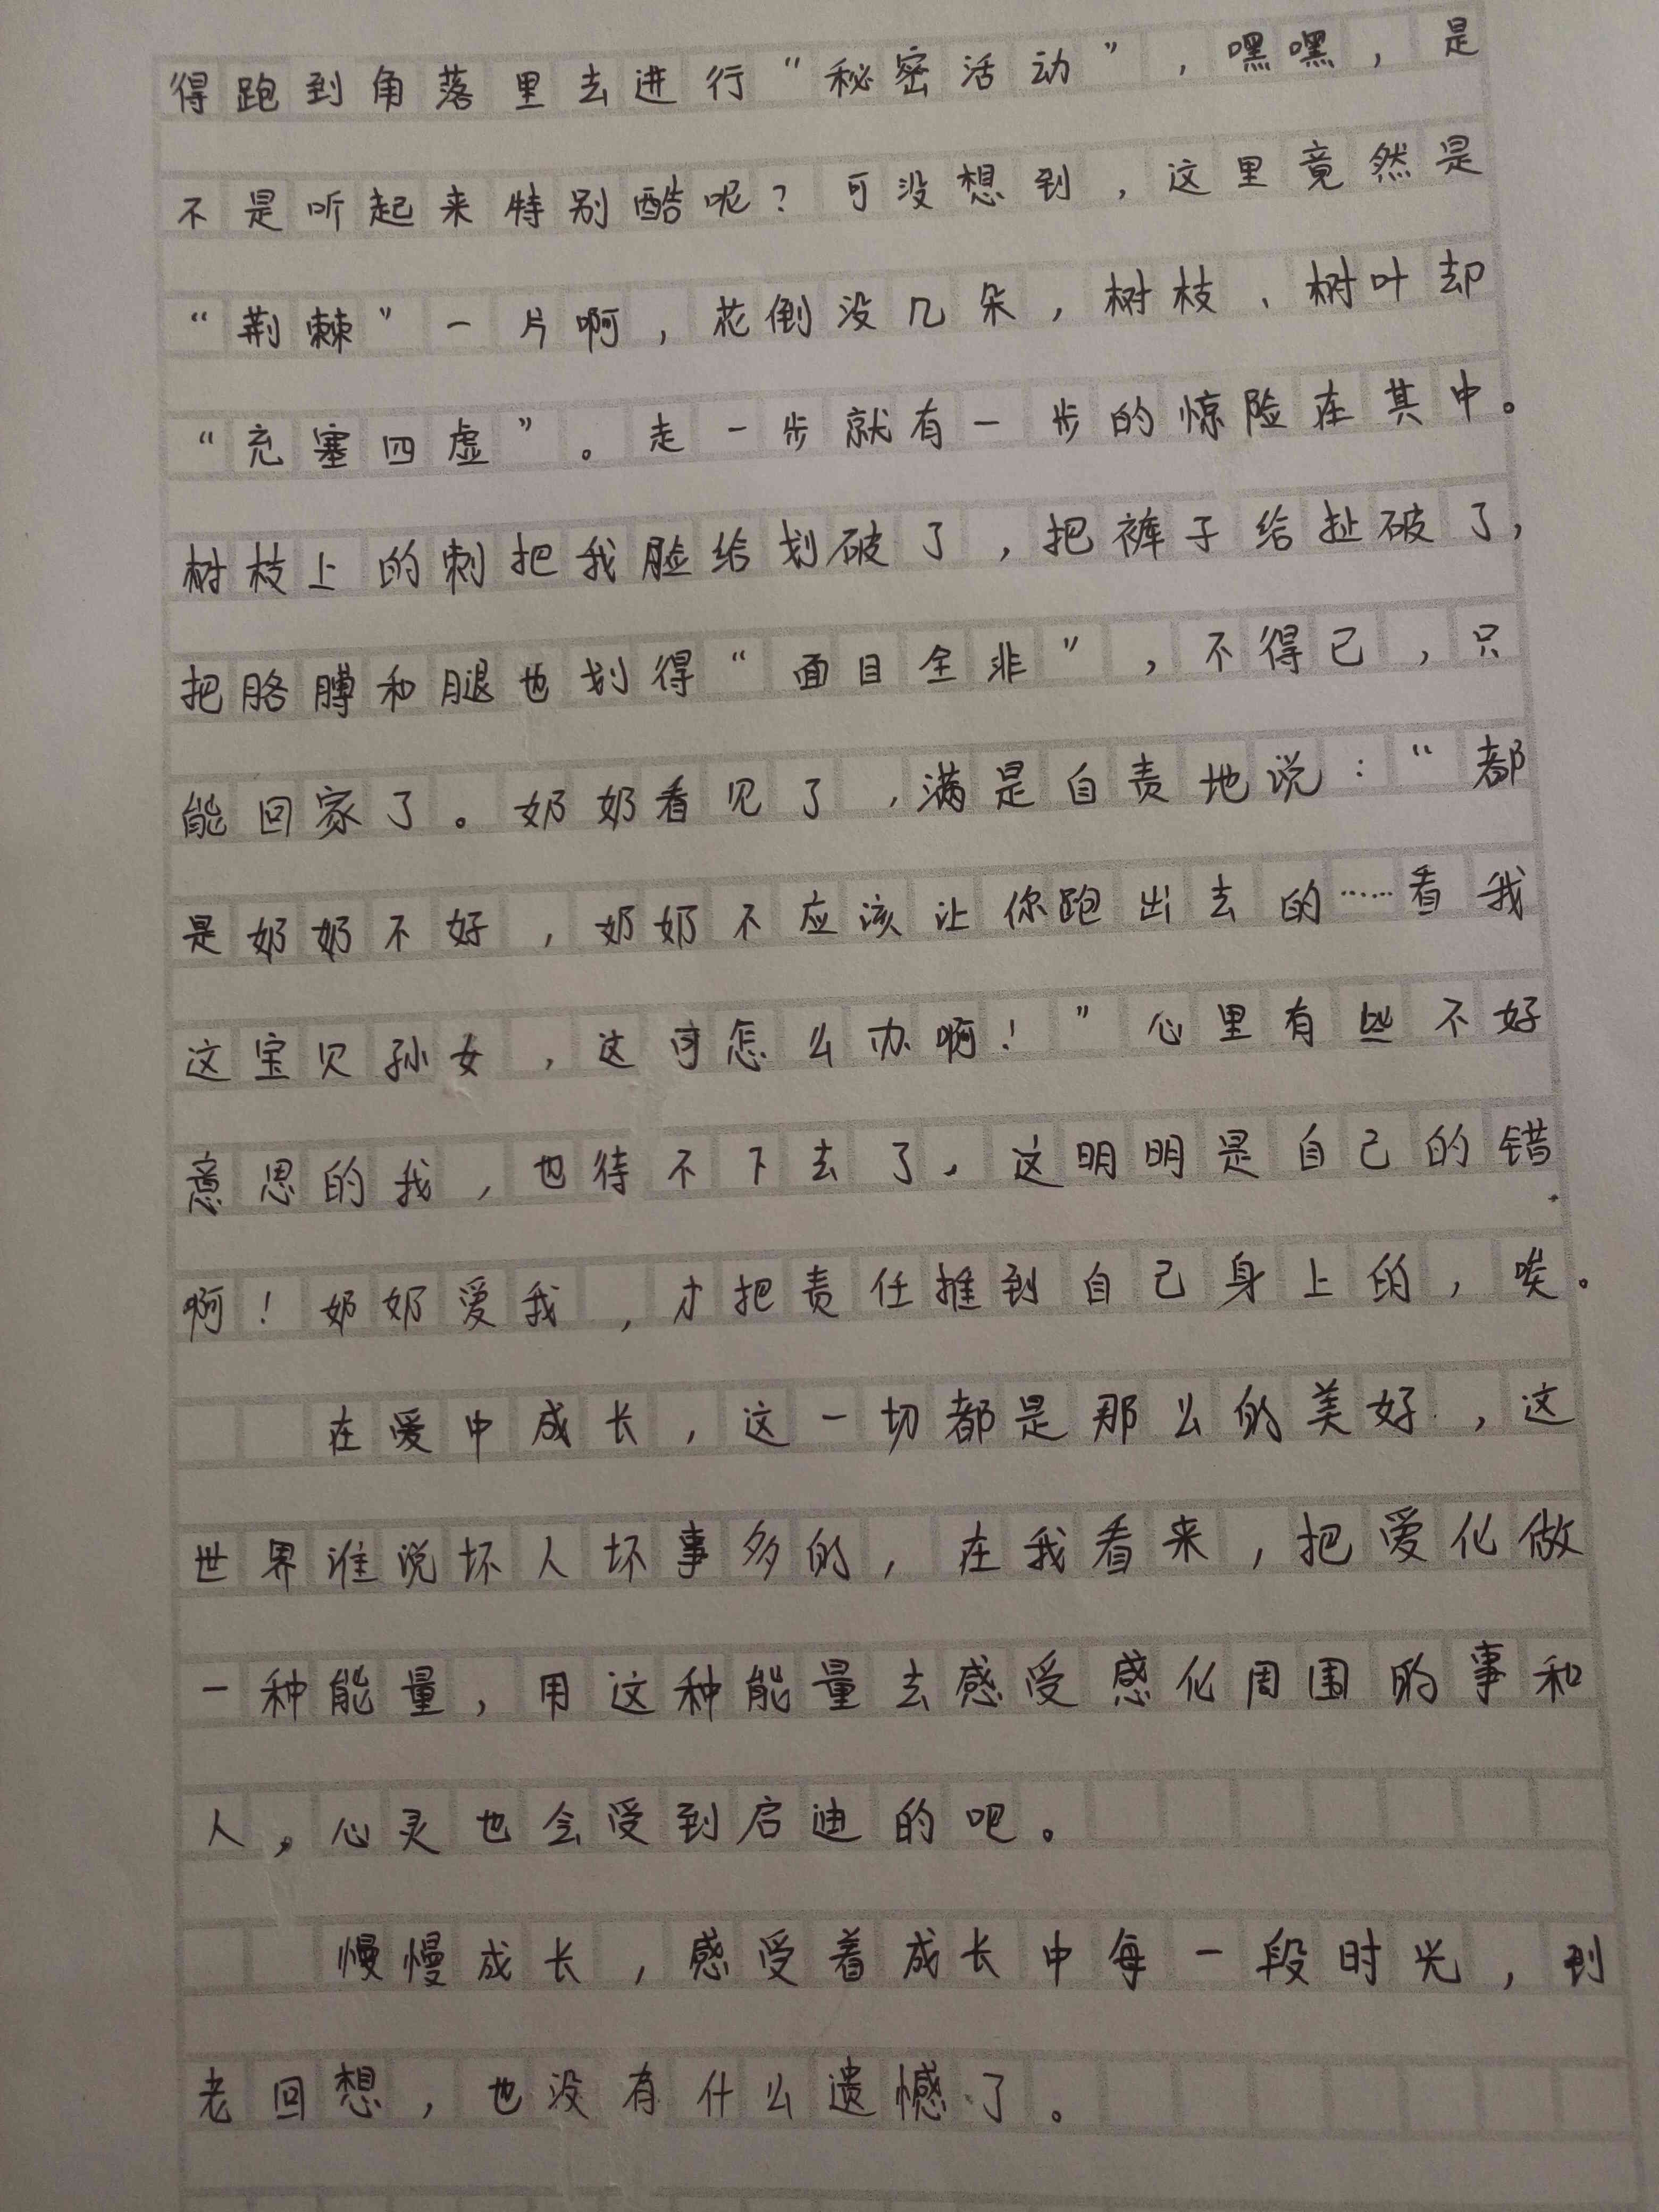 得跑到角落里去进行“秘密活动”，嘿嘿，是
不是听起来特别酷呢？可没想到，这里竟然是
“荆棘”一片啊，花倒没几朵，树枝、树叶却
“充塞四虚”。走一步就有一步的惊险在其中。
树枝上的刺把我脸给划破了，把裤子给扯破了，
把胳膊和腿也划得“面目全非”，不得已，只
能回家了。奶奶看见了，满是自责地说：“都
是奶奶不好，奶奶不应该让你跑出去的……看我
这宝贝孙女，这可怎么办啊！”心里有些不好
意思的我，也待不下去了，这明明是自己的错
啊！奶奶爱我，才把责任推到自己身上的，唉。
在爱中成长，这一切都是那么的美好，这
世界谁说坏人坏事多的，在我看来，把爱化做
一种能量，用这种能量去感受感化周围的事和
人，心灵也会受到启迪的吧。
慢慢成长，感受着成长中每一段时光，到
老回想，也没有什么遗憾了。